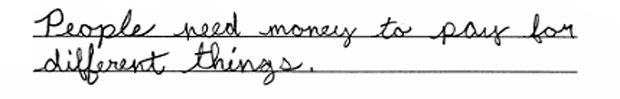 People need money to pay for
different things.